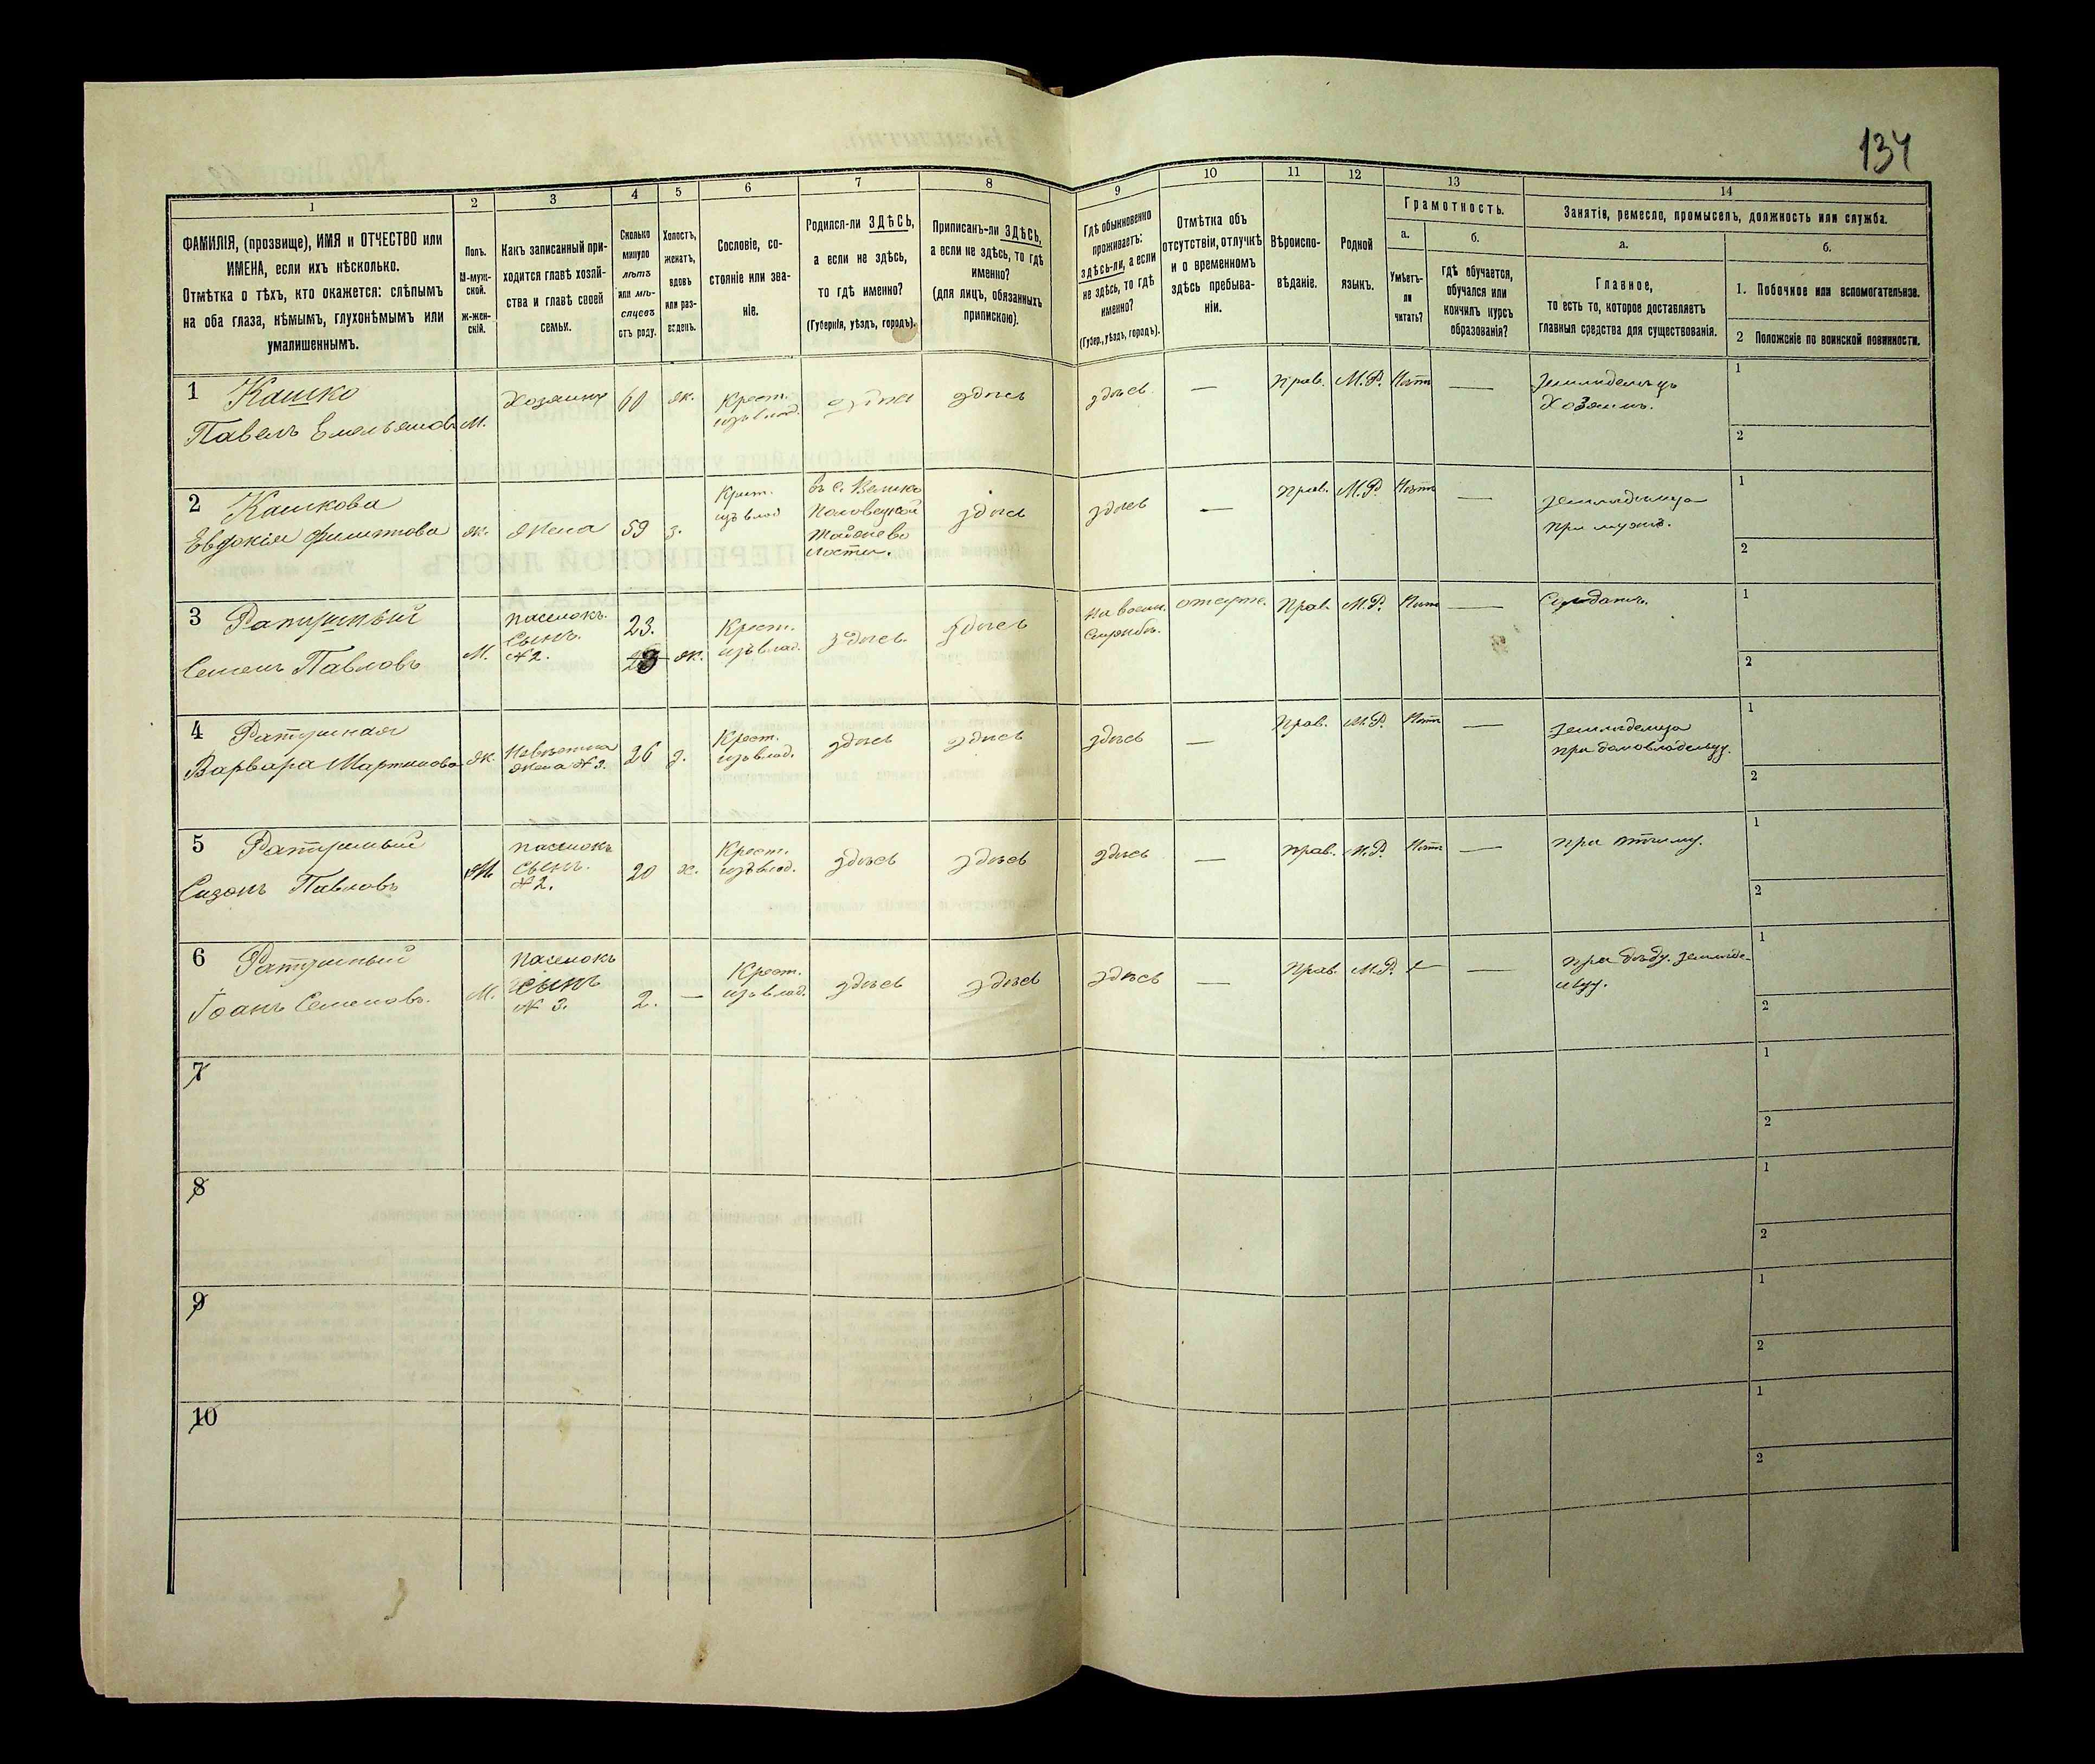 134
1
2
3
4
5
6
7
8
9
10
11
12
13
14
ФАМИЛІЯ, (прозвище), ИМЯ и ОТЧЕСТВО или
ИМЕНА, если ихъ нѣсколько.
Отмѣтка о тѣхъ, кто окажется: слѣпымъ
на оба глаза, нѣмымъ, глухонѣмымъ или
умалишеннымъ.
Полъ.
М-муж-
ской.
Ж-жен-
скій.
Какъ записанный при-
ходится главѣ хозяй-
ства и главѣ своей
семьи.
Сколько
минуло
лѣтъ
или мѣ-
сяцевъ
отъ роду.
Холостъ,
женатъ,
вдовъ
или раз-
веденъ.
Сословіе, со-
стояніе или зва-
ніе.
Родился-ли ЗДѢСЬ,
а если не здѣсь,
то гдѣ именно?
(Губернія, уѣздъ, городъ).
Приписанъ-ли ЗДѢСЬ,
а если не здѣсь, то гдѣ
именно?
(для лицъ, обязанныхъ
припискою).
Гдѣ обыкновенно
проживаетъ:
здѣсь-ли, а если
не здѣсь, то гдѣ
именно?
(Губер., уѣздъ, городъ).
Отмѣтка объ
отсутствіи, отлучкѣ
и о временномъ
здѣсь пребыва-
ніи.
Вѣроиспо-
вѣданіе.
Родной
языкъ.
Грамотность.
а.
Умѣетъ-
ли
читать?
б.
гдѣ обучается,
обучался или
кончилъ курсъ
образованія?
Занятія, ремесло, промыселъ, должность или служба.
а.
Главное,
то есть то, которое доставляетъ
главныя средства для существованія.
б.
1. Побочное или вспомогательное.
2 Положеніе по воинской повинности.
1 Кашко
Павелъ Емельяновъ
М.
Хозяинъ
60
ж.
Крест.
изъ влад.
здѣсь
здѣсь
—
Прав.
М.Р.
Нѣтъ
—
Земледѣлецъ
Хозяинъ.
1
2
2 Кашкова
Евдокія Филиппова
ж.
Жена
59
з.
Крест.
изъ влад
въ с. Велико
Половецкой
здѣсь
здѣсь
—
Прав.
М.Р.
Нѣтъ
—
Земледѣлица
при мужѣ.
1
2
3 Ратушный
Семенъ Павловъ
М.
пасынокъ.
Сынъ.
№ 2.
23.
ж.
Крест.
изъ влад.
здѣсь
здѣсь
На воен.
Службѣ.
отсутс.
Прав.
М.Р.
Нѣтъ
—
Солдатъ.
1
2
4 Ратушная
Варвара Мартинова
ж.
Невѣстка
Жена № 3.
26
з.
Крест.
изъ влад.
здѣсь
здѣсь
здѣсь
—
Прав.
М.Р.
Нѣтъ
—
Земледѣлица
при домовладѣльцу.
1
2
5 Ратушный
Сазонъ Павловъ
М.
пасынокъ
Сынъ.
№ 2.
20
х.
Крест.
изъ влад.
здѣсь
здѣсь
здѣсь
—
Прав.
М.Р.
Нѣтъ
—
при отчиму.
1
2
6 Ратушный
Іоанъ Семеновъ.
М.
пасынокъ
сынъ
№ 3.
2.
—
Крест.
изъ влад.
здѣсь
здѣсь
здѣсь
—
Прав.
М.Р.
—
—
при дѣду. земледе-
льцу.
1
2
7
1
2
8
1
2
9
1
2
10
1
2